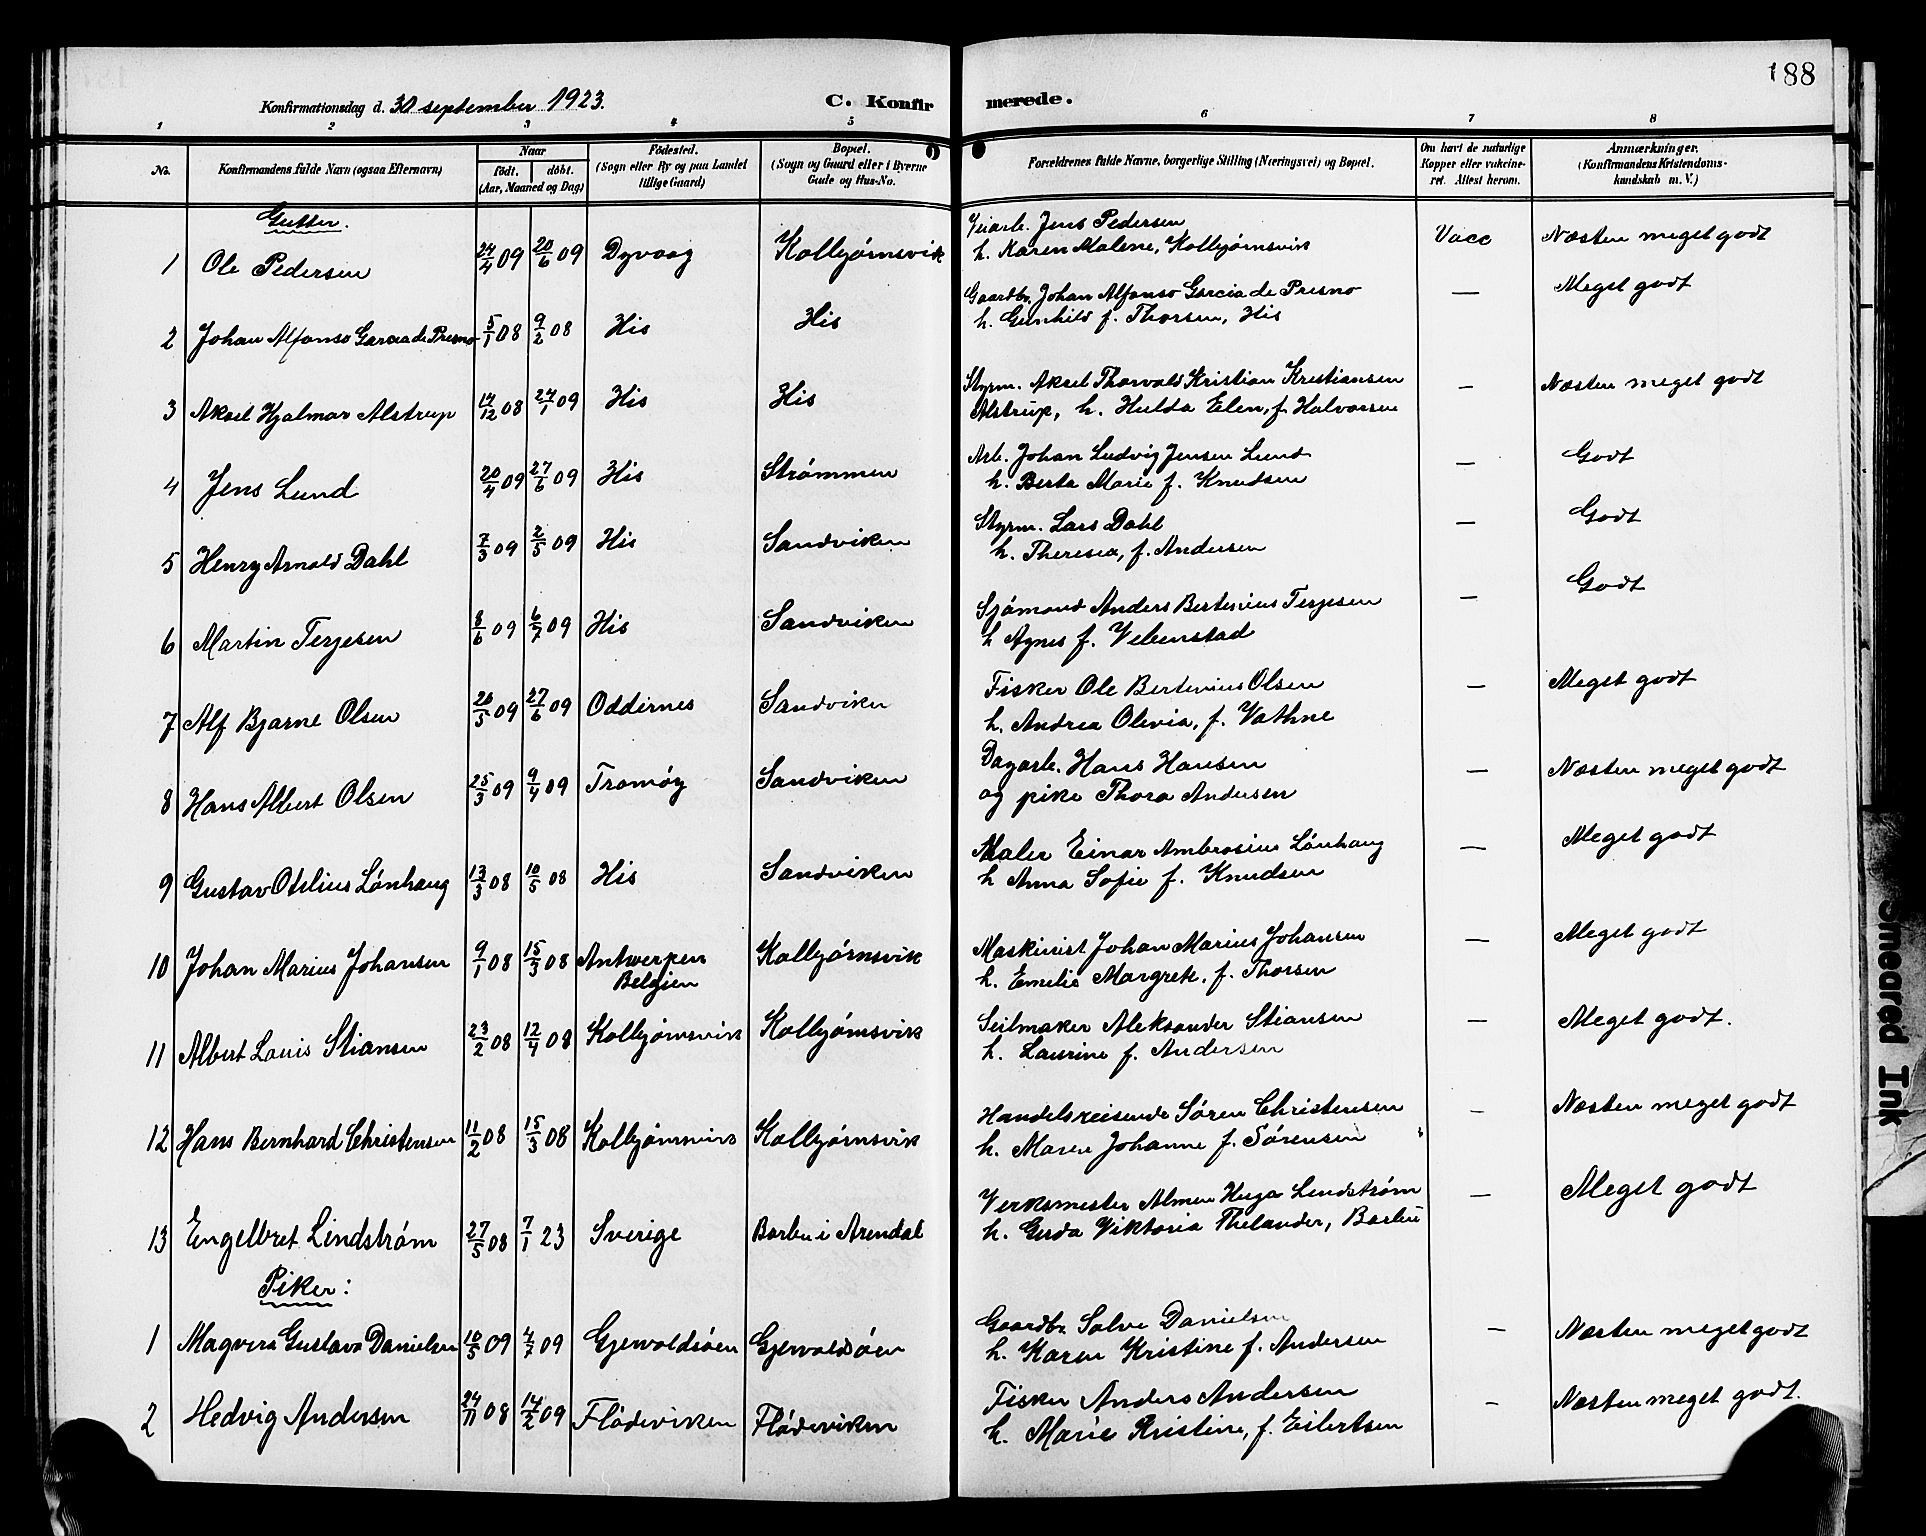 188
Konfirmationsdag d. 30 september 1923.
C. Konfirmerede.
1 2 3 4 5 6 7 8
No. Konfirmandens fulde Navn (ogsaa Efternavn) Naar født. døbt. (Aar, Maaned og Dag) Fødested. (Sogn eller By og paa Landet tillige Gaard) Bopæl. (Sogn og Gaard eller i Byerne Gade og Hus-No. Forældrenes fulde Navne, borgerlige Stilling (Næringsvei) og Bopæl. Om havt de naturlige Kopper eller vakcineret. Attest herom. Anmærkninger. (Konfirmandens Kristendomskundskab m. V.)
Gutter.
1 Ole Pedersen 24/4 09 20/6 09 Dyvaag Kolbjørnsvik Veiarb. Jens Pedersen Vacc Næsten meget godt
h. Karen Malene, Kolbjørnsvik
2 Johan Alfonso Garcia de Presno 5/1 08 9/2 08 His His Gaardbr. Johan Alfonso Garcia de Presno — Meget godt
h. Gunhild f. Thorsen, His
3 Aksel Hjalmar Alstrup 14/12 08 24/1 09 His His Styrm. Aksel Thorvald Kristian Kristiansen — Næsten meget godt
Alstrup, h. Hulda Elen, f. Halvorsen
4 Jens Lund 20/4 09 27/6 09 His Strømmen Arb. Johan Ludvig Jensen Lund — Godt
h. Berta Marie f. Knudsen
5 Henry Arnold Dahl 7/3 09 2/5 09 His Sandviken Styrm. Lars Dahl — Godt
h. Theresia, f. Andersen
6 Martin Terjesen 8/6 09 6/7 09 His Sandviken Sjømand Anders Bertinius Terjesen — Godt
h Agnes f. Vebenstad
7 Alf Bjarne Olsen 20/5 09 27/6 09 Oddernes Sandviken Fisker Ole Bertinius Olsen — Meget godt
h. Andrea Olevia, f. Vathne
8 Hans Albert Olsen 25/3 09 9/4 09 Tromøy Sandviken Dagarb. Hans Hansen — Næsten meget godt
og pike Thora Andersen
9 Gustav Otelius Lønhaug 13/3 08 10/5 08 His Sandviken Maler Einar Ambrosius Lønhaug — Meget godt
h Anna Sofie f. Knudsen
10 Johan Marius Johansen 9/1 08 15/3 08 Antwerpen Kolbjørnsvik Maskinist Johan Marius Johansen — Meget godt
Belgien h. Emilie Margrete, f. Thorsen
11 Albert Louis Stiansen 23/2 08 12/4 08 Kolbjørnsvik Kolbjørnsvik Seilmaker Aleksander Stiansen — Meget godt.
h. Laurine f. Andersen
12 Hans Bernhard Christensen 11/2 08 15/3 08 Kolbjørnsvik Kolbjørnsvik Handelsreisende Søren Christensen - Næsten meget godt
h. Maren Johanne f. Sørensen
13 Engelbret Lindstrøm 27/5 08 7/1 23 Sverige Barbu i Arendal Verksmester Almen Hugo Lindstrøm — Meget godt
h. Gerda Viktoria Thelander, Barbu
Piker:
1 Magvera Gustava Danielsen 10/5 09 4/7 09 Gjervoldsøen Gjervoldsøen Gaardbr Salve Danielsen — Næsten meget godt
h. Karen Kristine f. Andersen
2 Hedvig Andersen 24/11 08 14/2 09 Flødeviken Flødeviken Fisker Anders Andersen - Næsten meget godt.
h. Marie Kristine, f. Eilertsen
Smeared Ink